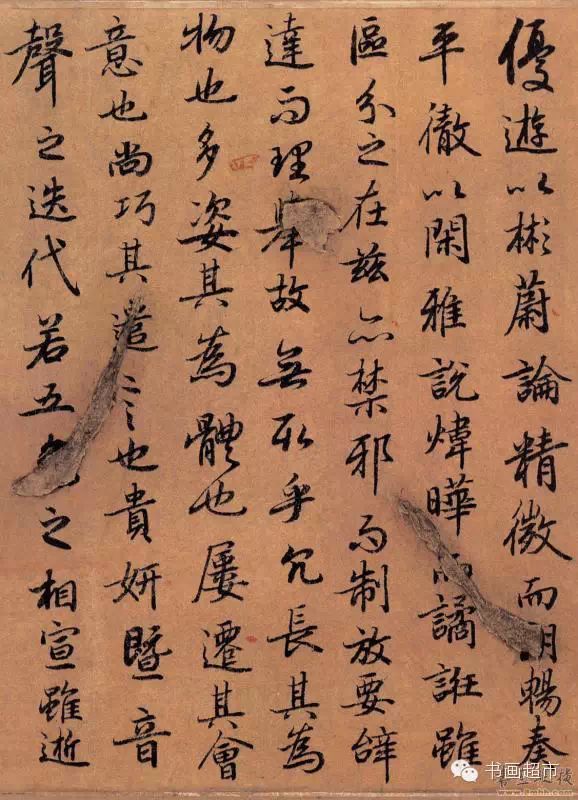 優遊以彬蔚論精微而朗暢奏
平徹以閑雅說煒曄而譎誑雖
區分之在茲亦禁邪而制放要辞
達而理舉故無取乎冗長其為
物也多姿其為體也屢遷其會
意也尚巧其遣言也貴妍暨音
聲之迭代若五色之相宣雖逝
书画超市